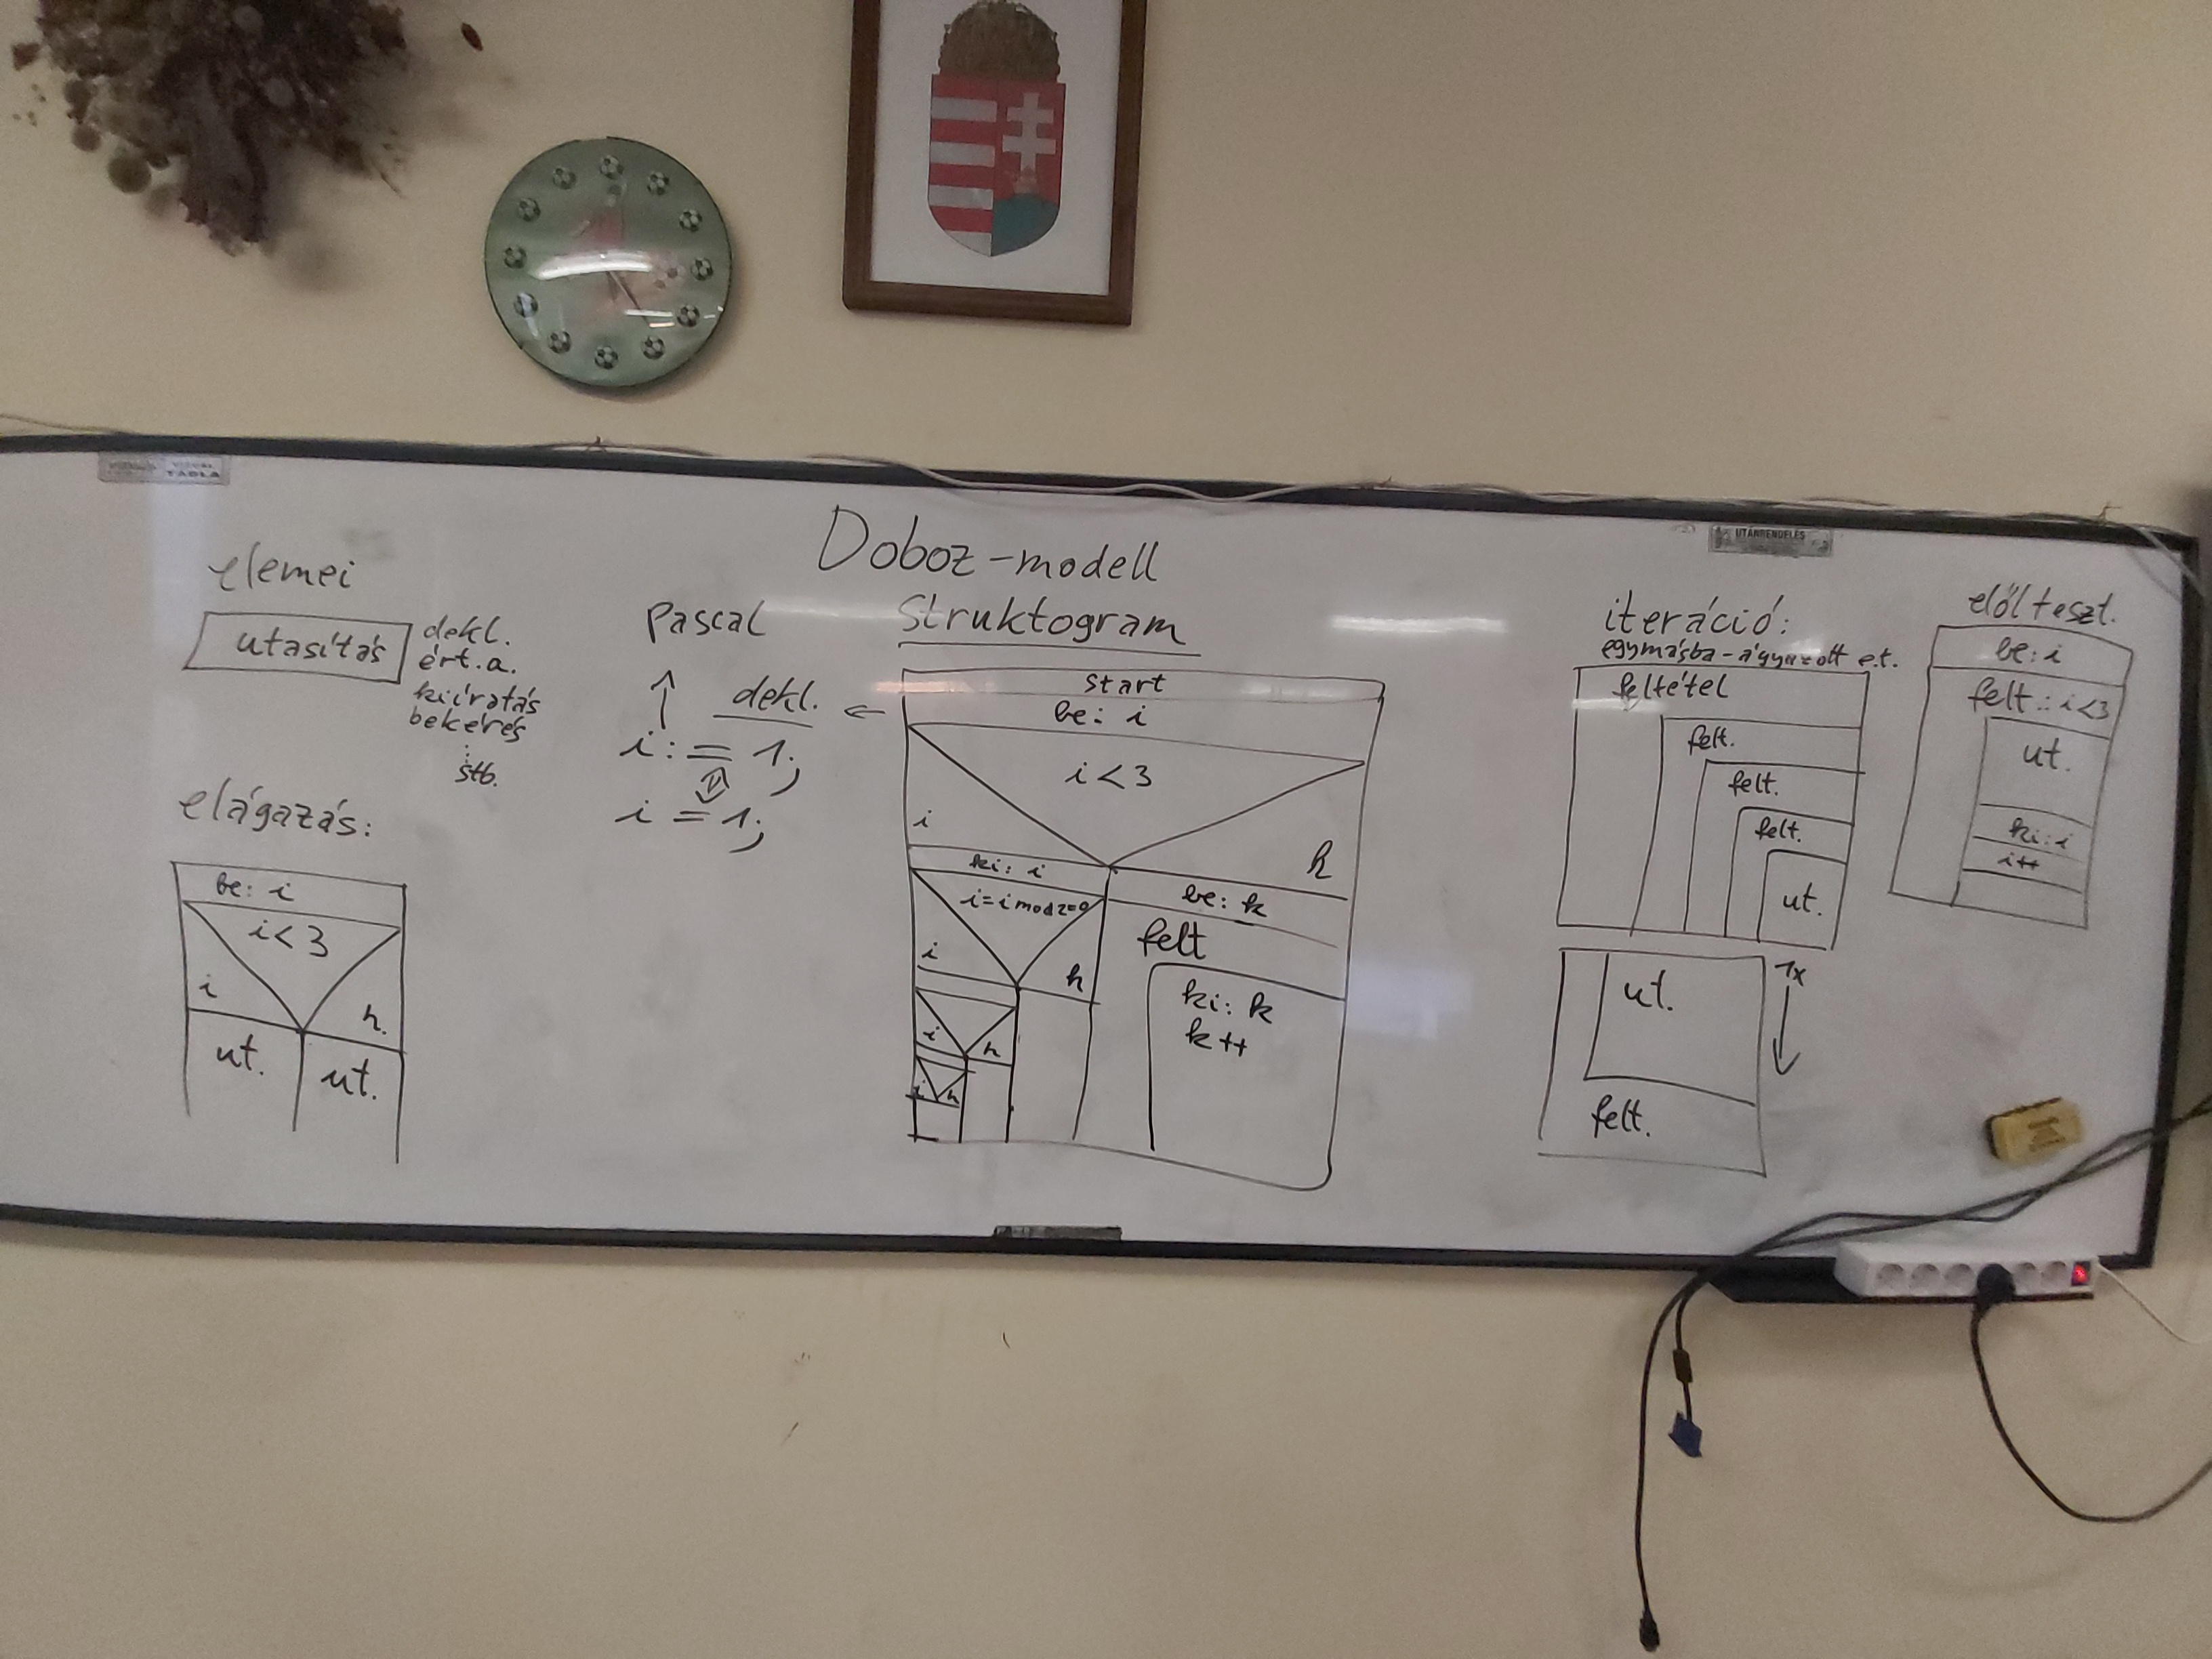 TÁBLA
UTÁNRENDELÉS
Doboz-modell
Struktogram
elemei
utasítás
dekl.
ért.a.
kiíratás
bekérés
⋮
stb.
elágazás:
be: i
i<3
i
h.
ut.
ut.
Pascal
↑
dekl. ←
i := 1;
i = 1;
Start
be: i
i<3
i
h
ki: i
i=i mod 2=0
i
h
i
h
i
h
be: k
felt
ki: k
k++
iteráció:
egymásba-ágyazott e.t.
feltétel
felt.
felt.
felt.
ut.
ut.
1x
felt.
elől teszt.
be: i
felt.: i<3
ut.
ki: i
i++